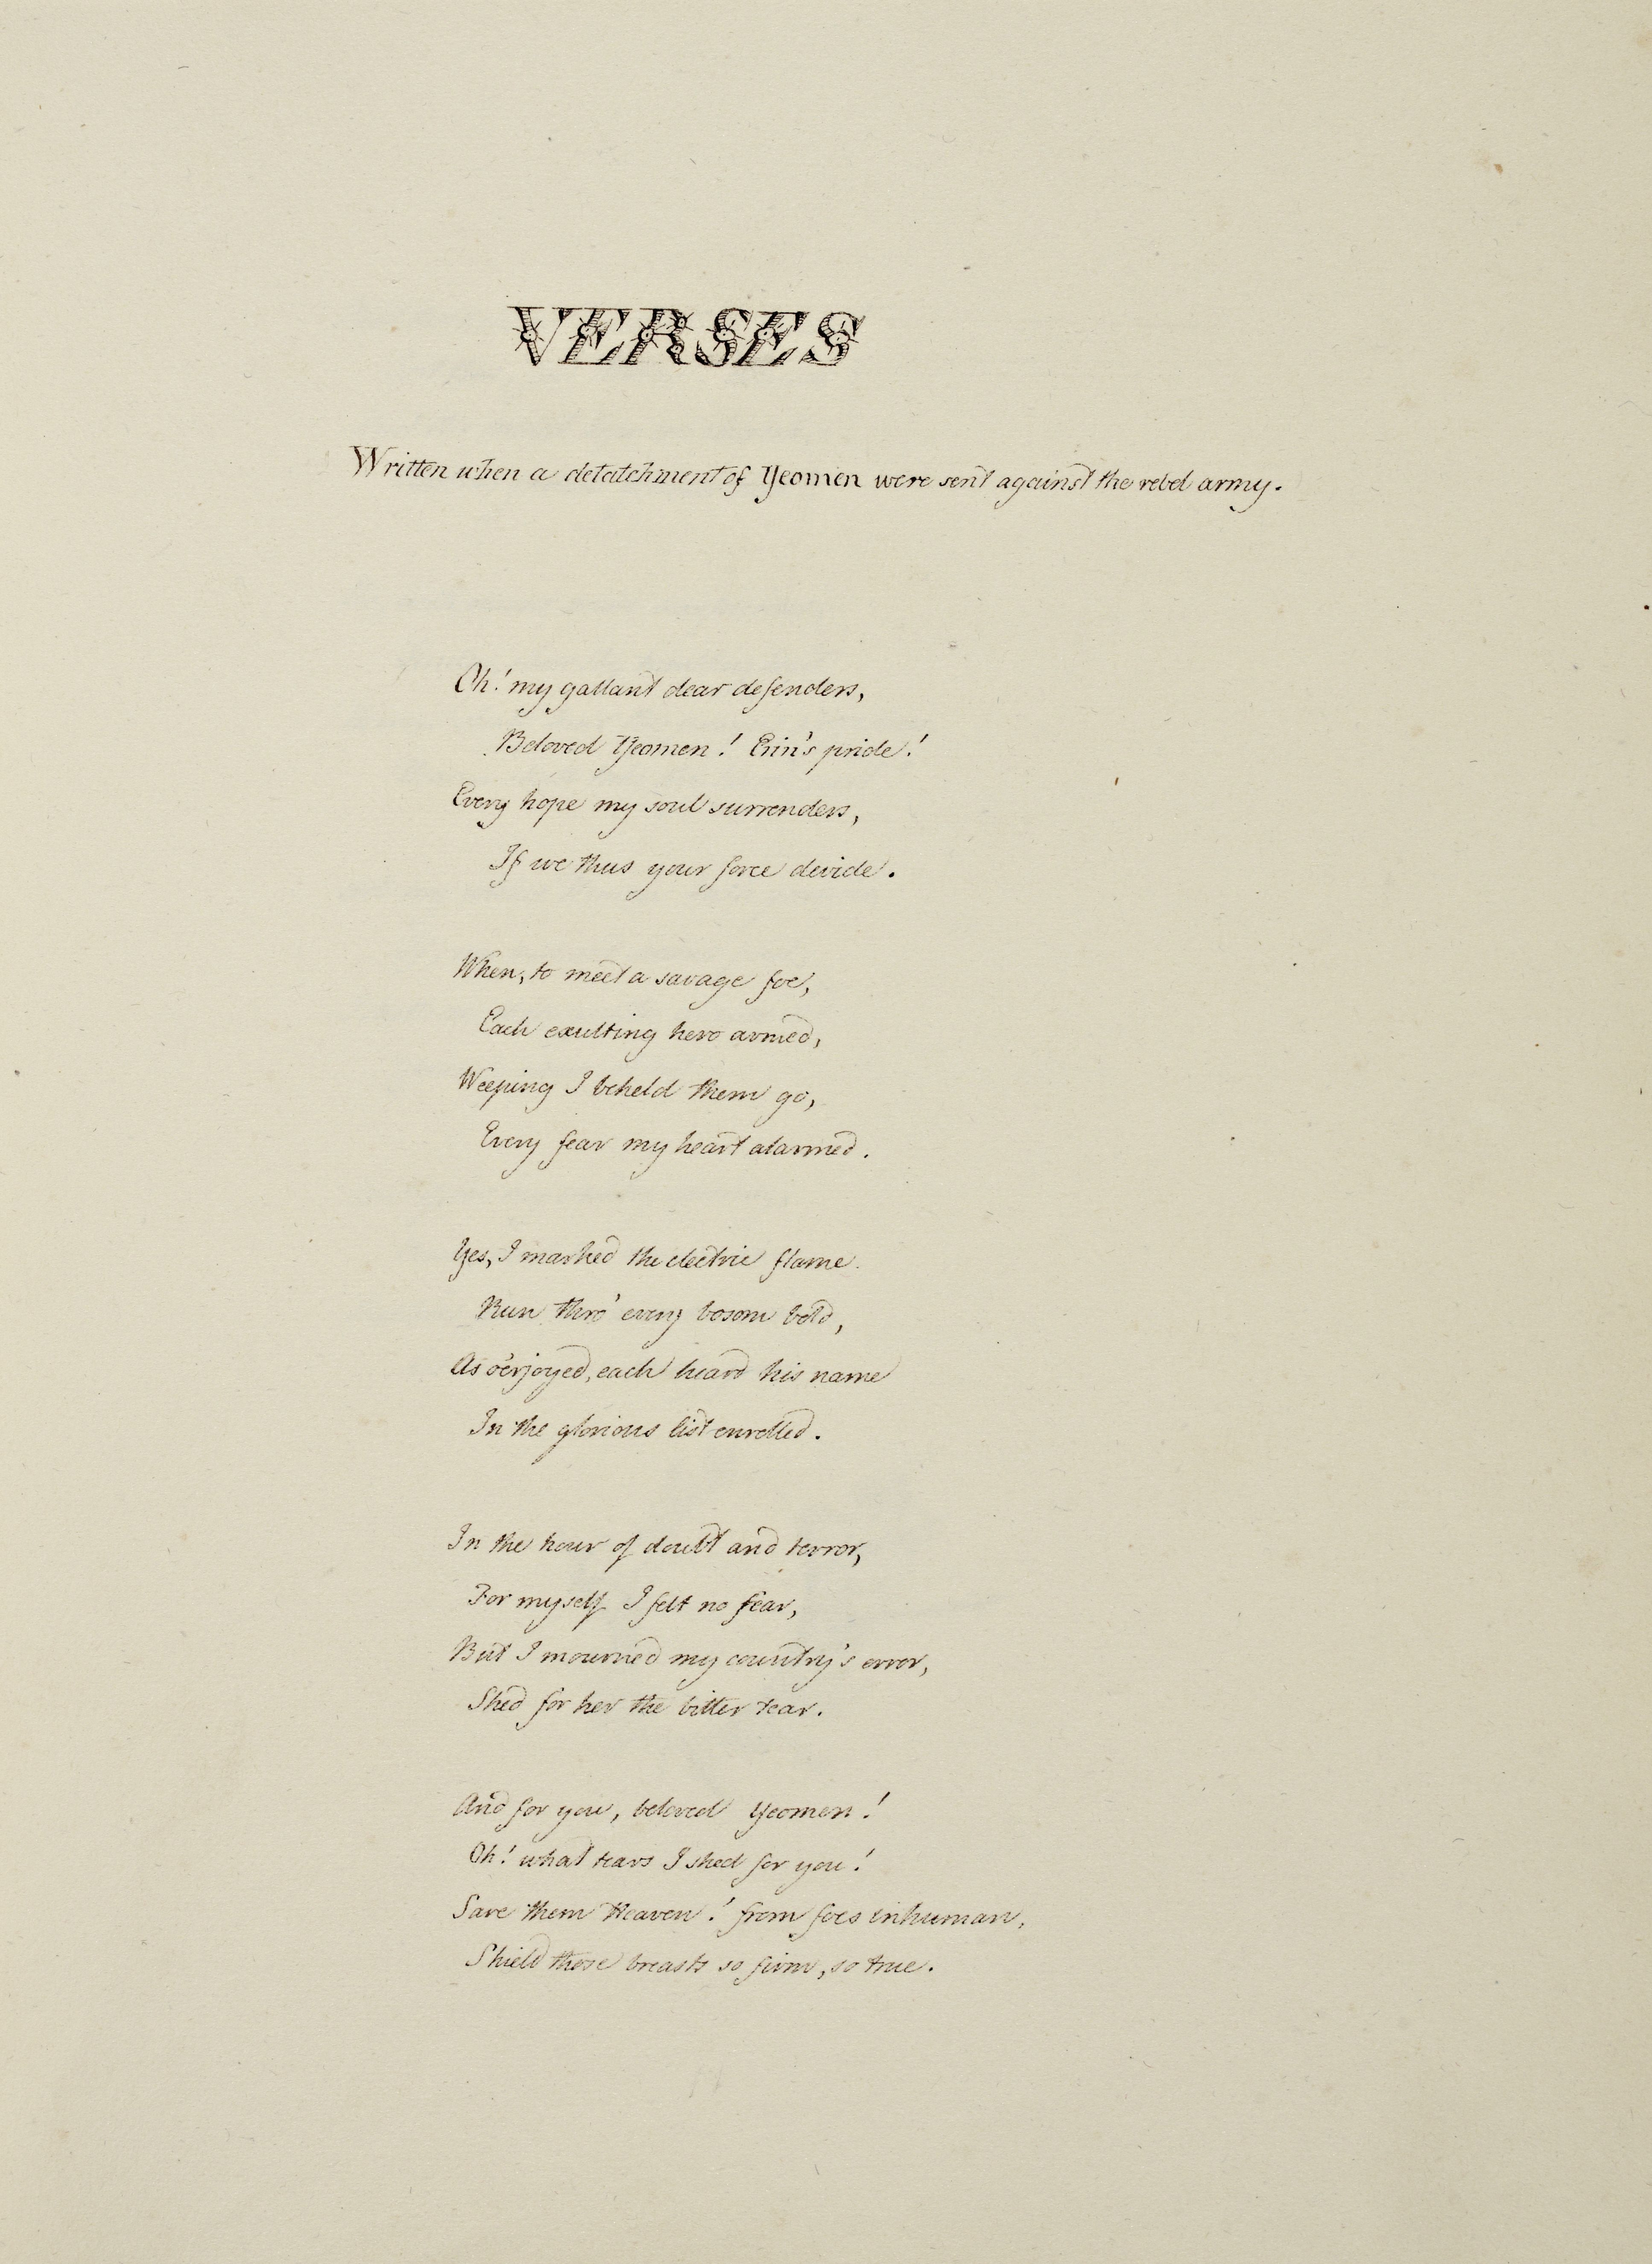 VERSES
Written when a detatchment of Yeomen were sent against the rebel army.
Oh! my gallant dear defenders,
Beloved Yeomen! Erin's pride!
Every hope my soul surrenders,
If we thus your force devide.
When, to meet a savage foe,
Each exulting hero armed,
Weeping I beheld them go,
Every fear my heart alarmed.
Yes, I marked the electric flame.
Run thro' every bosom bold,
As o'erjoyed, each heard his name
In the glorious list enrolled.
In the hour of doubt and terror,
For myself I felt no fear,
But I mourned my country's error,
Shed for her the bitter tear.
And for you, beloved Yeomen!
Oh! what tears I shed for you!
Save them Heaven! from foes inhuman,
Shield those breasts so firm, so true.